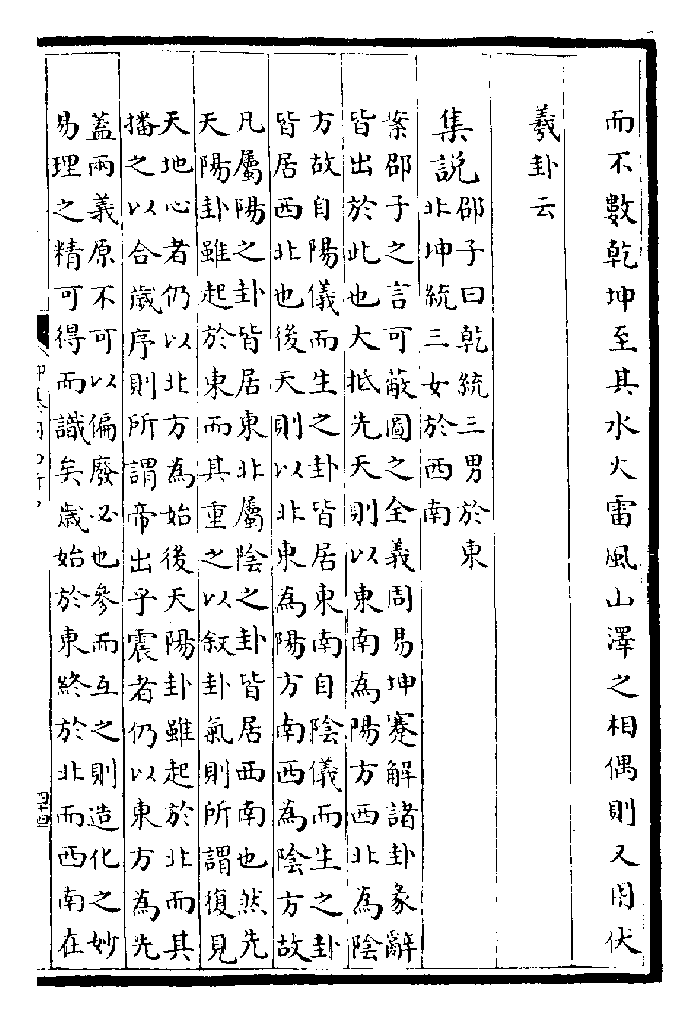 而不數乾坤至其水火雷風山澤之相偶則又用伏
羲卦云
集説
邵子曰乾統三男於東
北坤統三女於西南
案邵子之言可蔽圖之全義周易坤蹇解諸卦彖辭
皆出於此也大抵先天則以東南為陽方西北為陰
方故自陽儀而生之卦皆居東南自陰儀而生之卦
皆居西北也後天則以北東為陽方南西為陰方故
凡屬陽之卦皆居東北屬陰之卦皆居西南也然先
天陽卦雖起於東而其重之以叙卦氣則所謂復見
天地心者仍以北方為始後天陽卦雖起於北而其
播之以合歲序則所謂帝出乎震者仍以東方為先
蓋兩義原不可以偏廢必也參而互之則造化之妙
易理之精可得而識矣歲始於東終於北而西南在